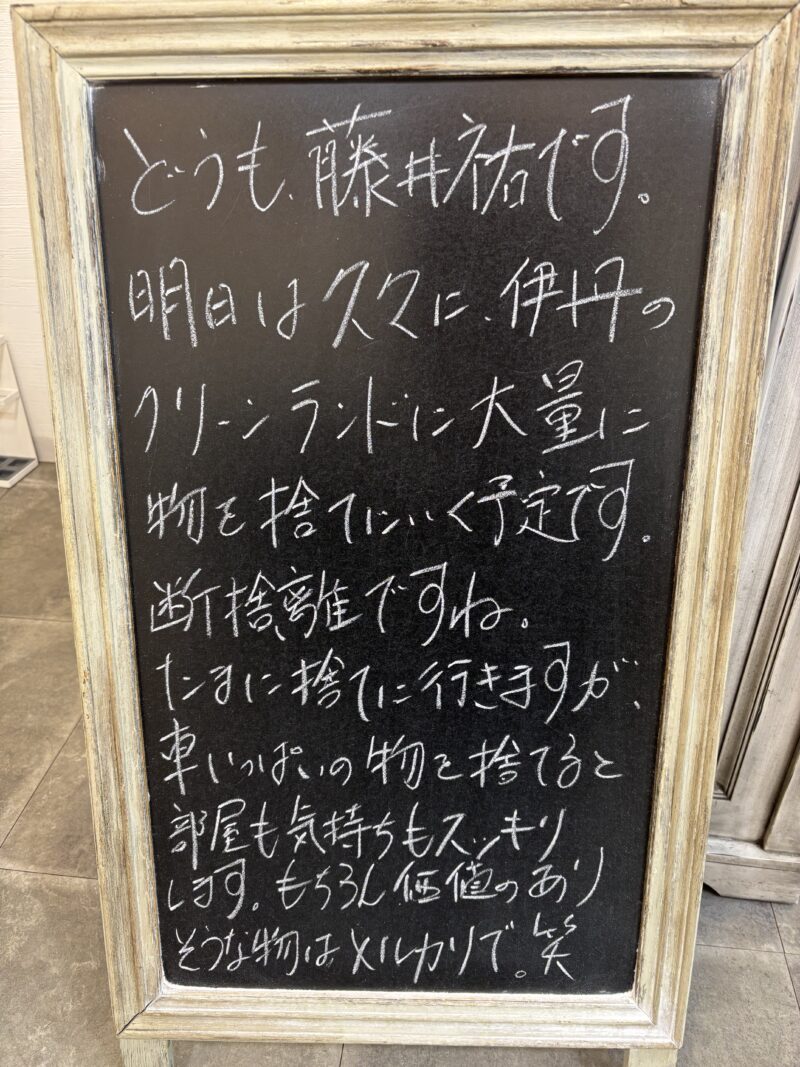 どうも、藤井祐です。
明日は久々に、伊丹の
クリーンランドに大量に
物を捨てにいく予定です。
断捨離ですね。
たまに捨てに行きますが、
車いっぱいの物を捨てると
部屋も気持ちもスッキリ
します。もちろん価値のあり
そうな物はメルカリで。笑